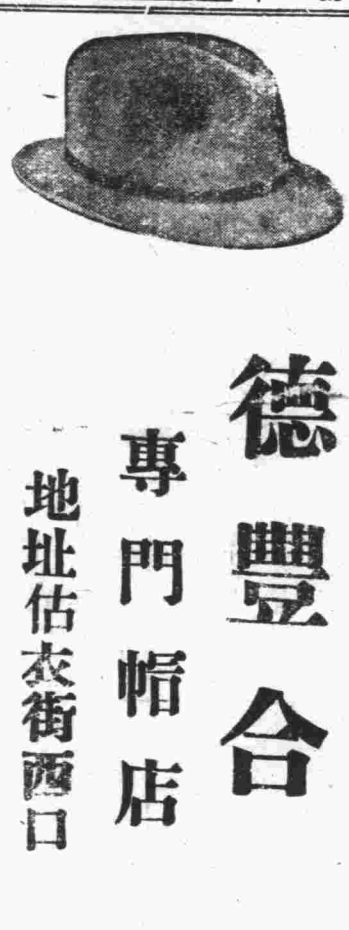 德豐合
專門帽店
地址估衣街西口